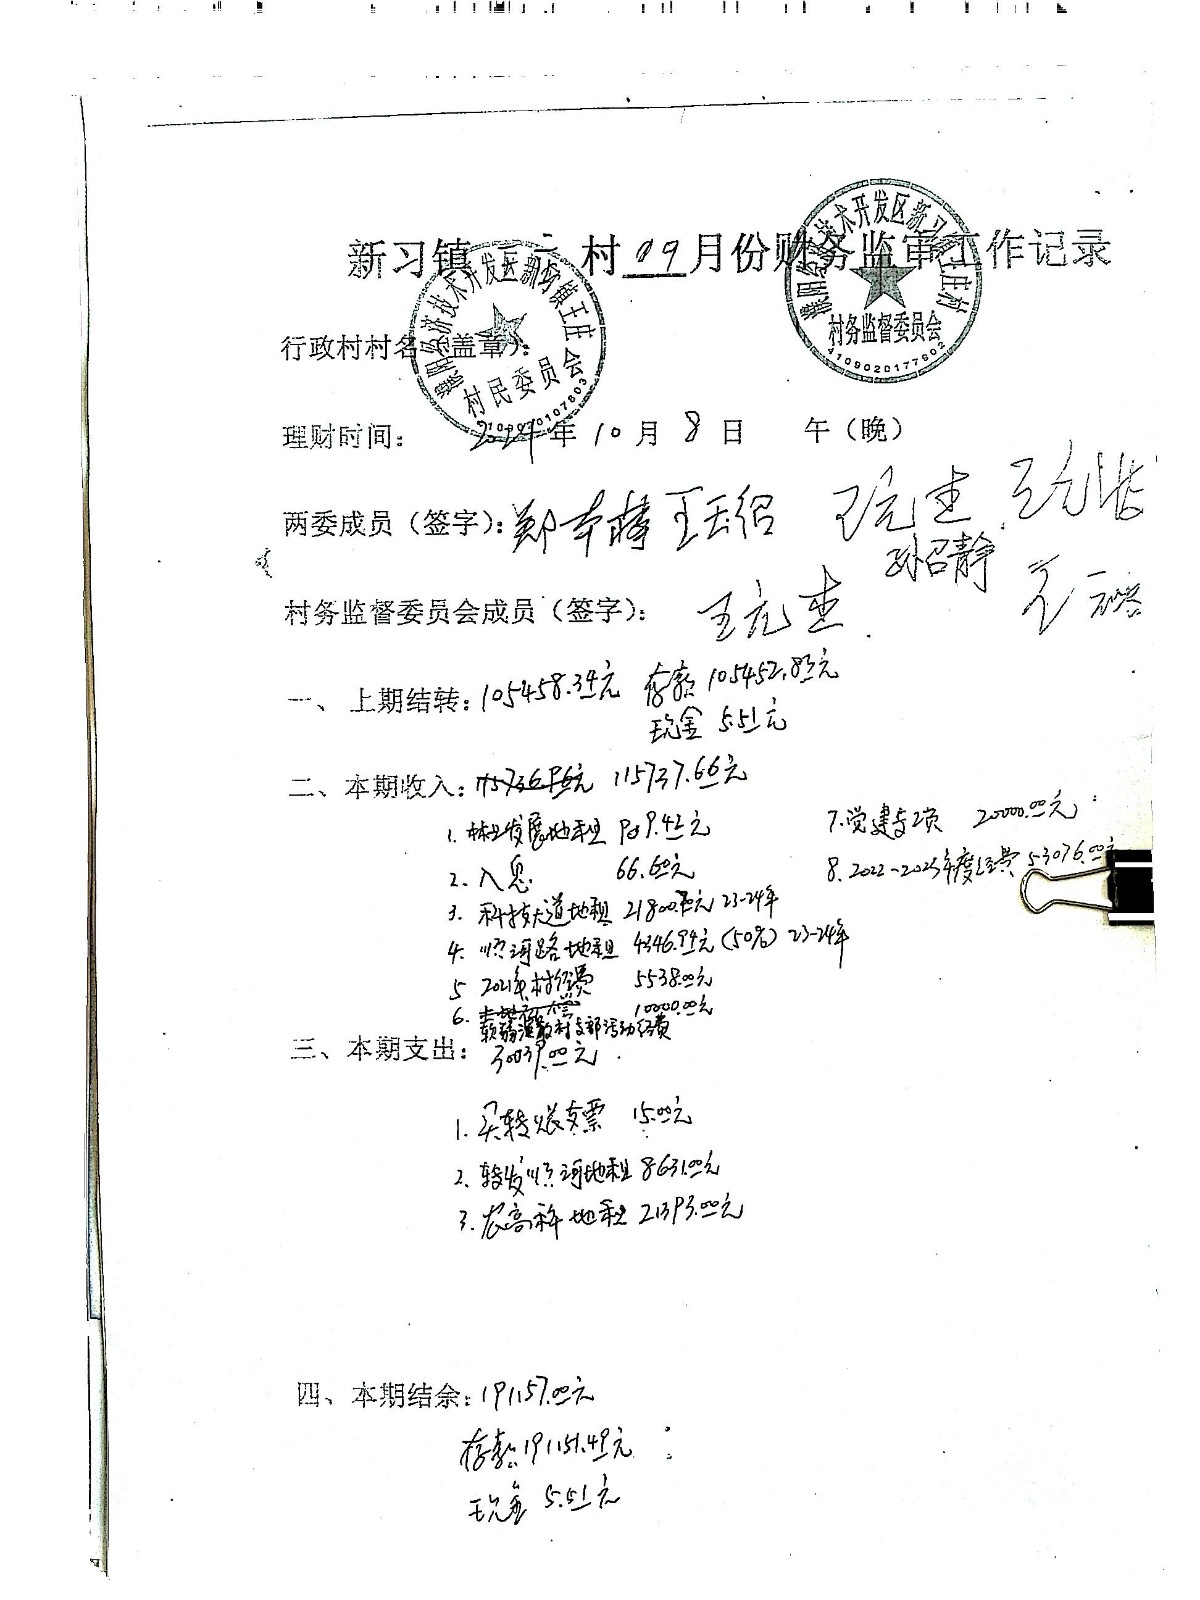 新习镇 村 09 月份财务监审工作记录
濮阳经济技术开发区新习镇王庄
村民委员会
濮阳经济技术开发区新习镇王庄村
村务监督委员会
4109020177602
行政村村名(盖章):
理财时间: 2024年10月8日 午(晚)
两委成员(签字):
孙召静
村务监督委员会成员(签字):
一、上期结转:105458.34元 存款 105452.83元
现金 5.51元
二、本期收入: 115737.66元
1. 林业发展地租 909.42元
2. 入息 66.60元
3. 科技大道地租 21800.70元 23-24年
4. 顺河路地租 4346.94元(50%) 23-24年
5 2021年村经费 5538.00元
6. 10000.00元
村支部活动经费
7. 党建专项 20000.00元
8. 2022-2023年度经费 53076.00元
三、本期支出: 30039.00元.
1. 买转账支票 15.00元
2. 转发顺河地租 8631.00元
3. 农高科地租 21393.00元
四、本期结余:191157.00元
存款:191151.49元
现金 5.51元